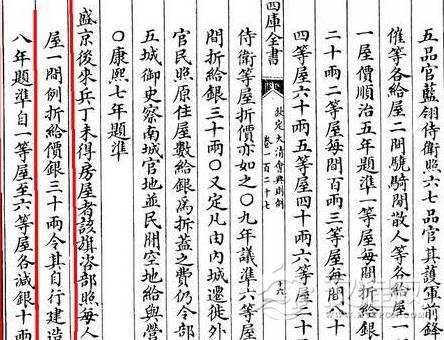 五品官藍翎侍衛照六七品官其護軍前鋒
催等各給屋二間驍騎閒散人等各給屋一
一屋價順治五年題準一等屋每間折給銀
二十兩二等屋每間百兩三等屋每間
四等屋六十兩五等屋四十兩六等屋二十
四庫全書
欽定大清會典則例
卷一百二十七
十六
侍衛等屋折價亦如之○九年議準六等屋
間折給銀三十兩○又定凡由內城遷徙外
官民照原住屋數給銀爲拆蓋之費仍令部
五城御史察南城官地並民間空地給與營
○康熙七年題準
盛京後來兵丁未得房屋者該旗咨部照每人
屋一間例折給價銀三十兩令其自行建造
八年題準自一等屋至六等屋各減銀十兩